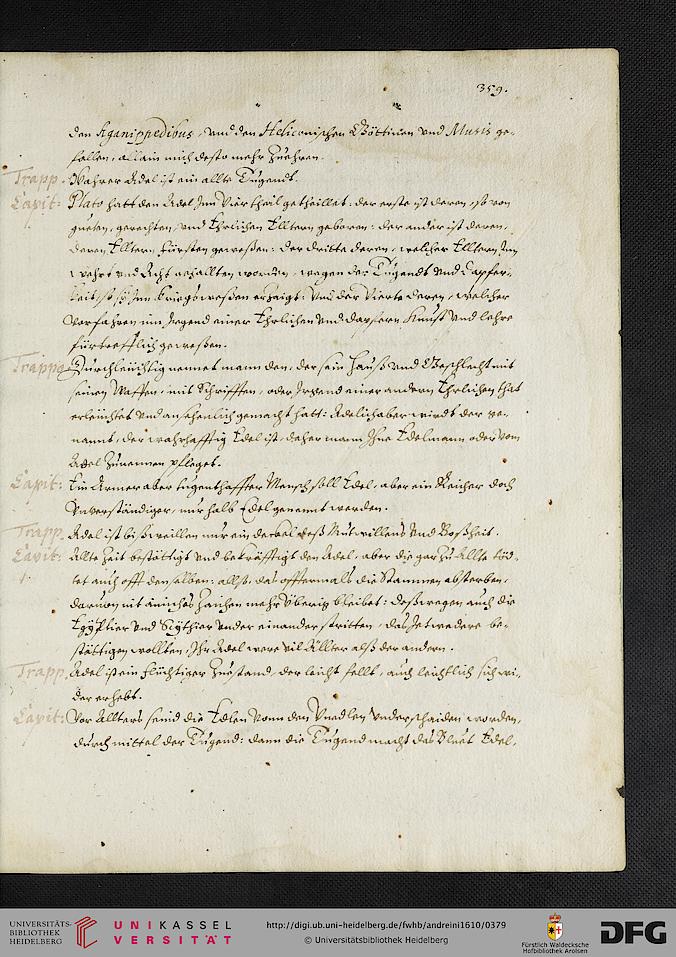 359.
den Aganippedibus, und den Heliconischen Göttinen und Musis ge-
fallen, allain mich desto mehr Zuehren.
Trapp. Wahrer Adel ist ein allte Tugendt.
Capit: Plato hatt den Adel Inn Vier theil getheillet: der erste ist deren, so von
gueten, gerechten, und Ehrlichen Elltern geboren: der ander ist deren,
deren Elltern fürsten gewesßen: der dritte deren, welcher Elltern Inn
wehrt und Acht gehallten worden, wegen der Tugendt und Dapfer-
keit, so sy Inn kriegswesßen erzaigt: Und der Vierte deren, welcher
Vorfahren inn Irgend einer Ehrlichen und dapfern Kunst und lehre
fürtrefflich gewesßen.
Trapp. Durchleüchtig nennet mann den, der sein Hauß und Geschlecht mit
seinen Waffen, mit Schrifften, oder Irgend einer andern Ehrlichen that
erleüchtet und ansehenlich gemacht hatt: Adelich aber wirdt der ge-
nannt, der wahrhafftig Edel ist, daher mann Ihne Edelmann oder vom
Adel Zunennen pfleget.
Capit: Ein Armer aber tugenthaffter Mensch soll Edel, aber ein Reicher doch
Unverständiger, nur halb Edel genennt werden.
Trapp. Adel ist bißweillen nur ein deckel deß Mutwillens und Boßheit.
Capit: Allte Zeit bestättigt und bekräfftigt den Adel, aber die gar Zu Allte töd-
tet auch offt denselben: allso, das offtermals die Stammen absterben,
darvon nit ainiches Zaichen mehr überig bleibet: deßwegen auch die
Egÿptier und Scÿthier under einander stritten, das Jetwedere be-
stättigen wollten, Ihr Adel were vil Ällter alß der andern.
Trapp. Adel ist ein flüchtiger Zuestand, der leicht fellt, auch leichtlich sich wi-
der erhebt.
Capit: Vor Allters seind die Edlen vonn den Unedlen underschaiden worden,
durch mittel der Tugend: dann die Tugend macht das Bluet Edel,
UNIVERSITÄTS-
BIBLIOTHEK
HEIDELBERG
UNIKASSEL
VERSITÄT
http://digi.ub.uni-heidelberg.de/fwhb/andreini1610/0379
© Universitätsbibliothek Heidelberg
Fürstlich Waldecksche
Hofbibliothek Arolsen
DFG